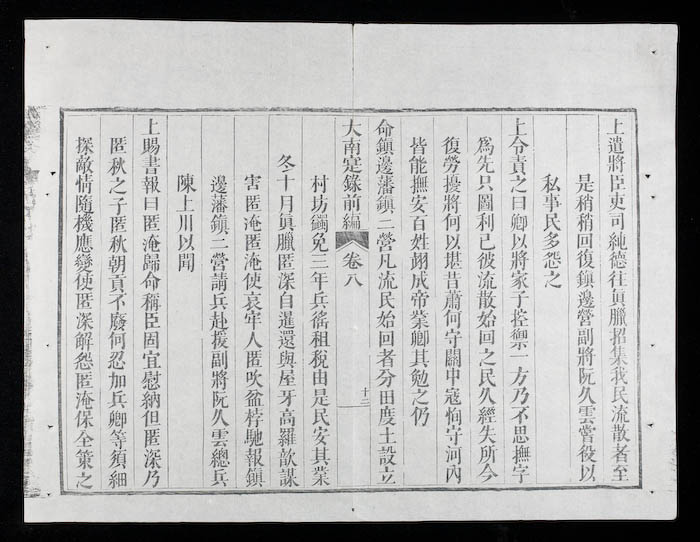 上遣將臣吏司純德往真臘招集我民流散者至
是稍稍回復鎮邊營副將阮久雲嘗役以
私事民多怨之
上令責之曰卿以將家子控禦一方乃不思撫字
為先只圖利己彼流散始回之民久經失所今
復勞擾將何以堪昔蕭何守關中寇恂守河內
皆能撫安百姓翊成帝業卿其勉之仍
命鎮邊藩鎮二營凡流民始回者分田度土設立
大南寔錄前編 卷八 十二
村坊蠲免三年兵徭租稅由是民安其業
冬十月真臘匿深自暹還與屋牙高羅歆謀
害匿淹匿淹使哀牢人匿吹盆桲馳報鎮
邊藩鎮二營請兵赴援副將阮久雲總兵
陳上川以聞
上賜書報曰匿淹歸命稱臣固宜慰納但匿深乃
匿秋之子匿秋朝貢不廢何忍加兵卿等須細
探敵情隨機應變使匿深解怨匿淹保全策之